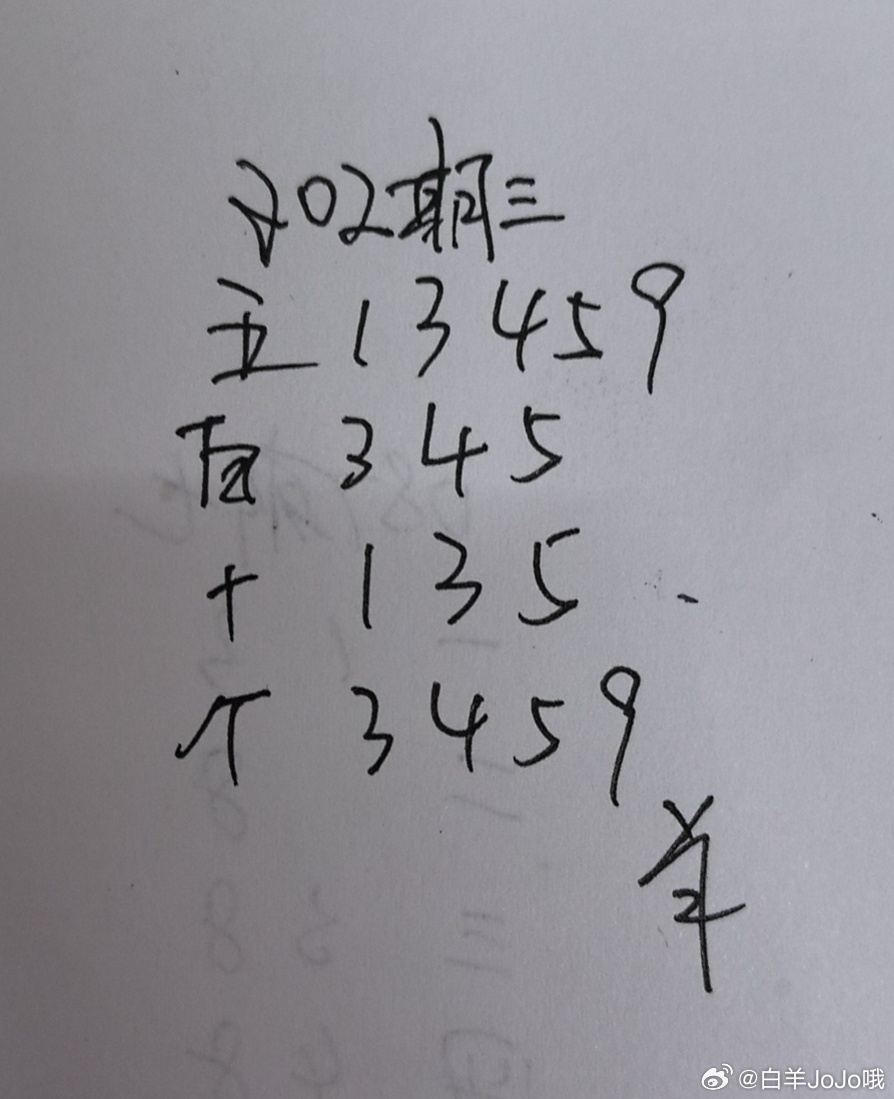 202期三
主 1 3 4 5 9
百 3 4 5
十 1 3 5
个 3 4 5 9
@白羊JoJo哦